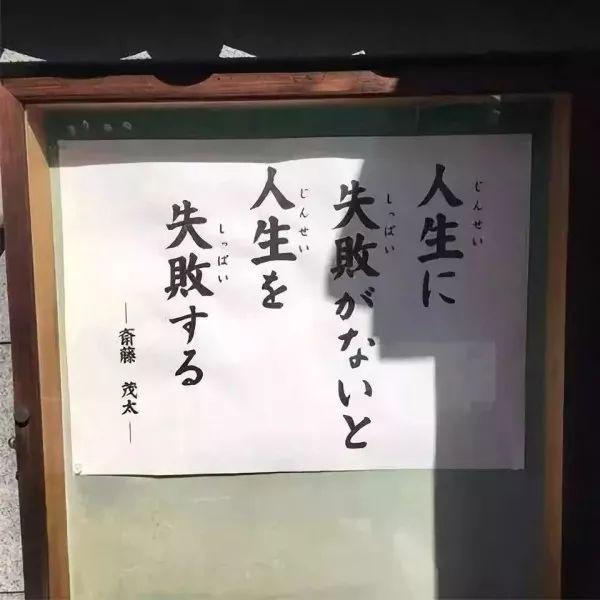 人生に
失敗がないと
人生を
失敗する
―斎藤 茂太―
じんせい
しっぱい
じんせい
しっぱい